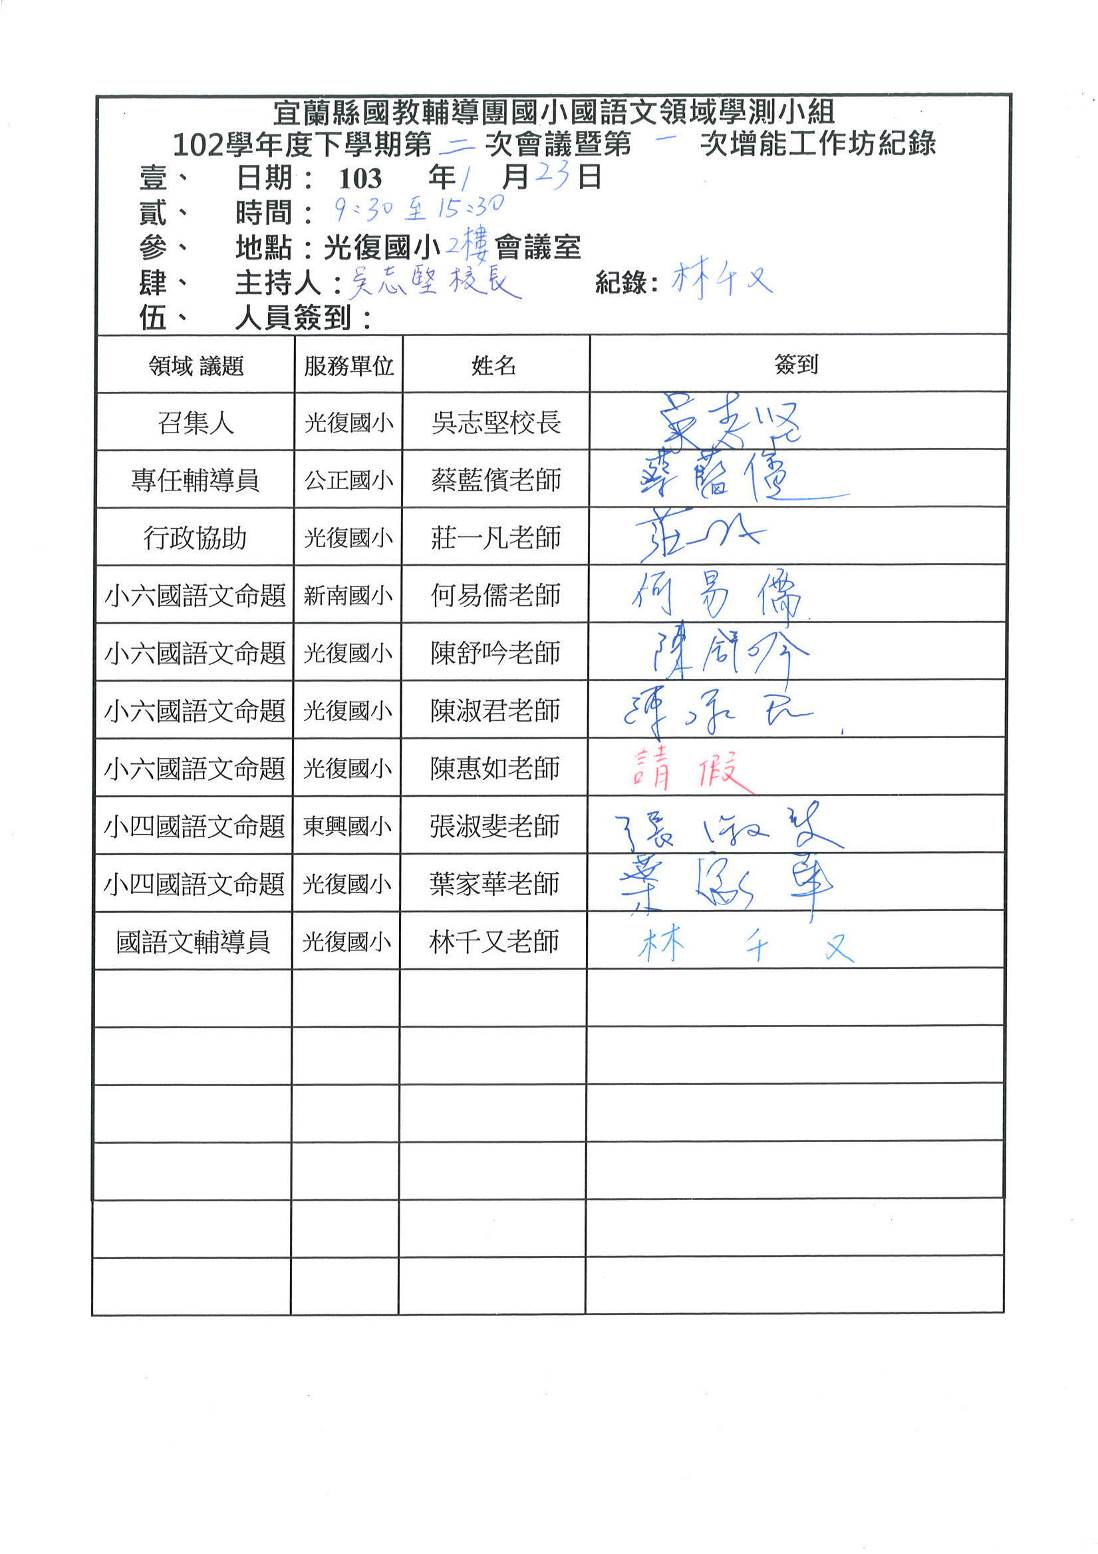 宜蘭縣國教輔導團國小國語文領域學測小組
102學年度下學期第 二 次會議暨第 一 次增能工作坊紀錄
壹、 日期： 103 年 1 月 23 日
貳、 時間： 9:30 至 15:30
參、 地點：光復國小 2樓 會議室
肆、 主持人：吳志堅校長 紀錄：林千又
伍、 人員簽到：
領域 議題 服務單位 姓名 簽到
召集人 光復國小 吳志堅校長 吳志堅
專任輔導員 公正國小 蔡藍儐老師 蔡藍儐
行政協助 光復國小 莊一凡老師 莊一凡
小六國語文命題 新南國小 何易儒老師 何易儒
小六國語文命題 光復國小 陳舒吟老師 陳舒吟
小六國語文命題 光復國小 陳淑君老師 陳淑君
小六國語文命題 光復國小 陳惠如老師 請假
小四國語文命題 東興國小 張淑斐老師 張淑斐
小四國語文命題 光復國小 葉家華老師 葉家華
國語文輔導員 光復國小 林千又老師 林千又